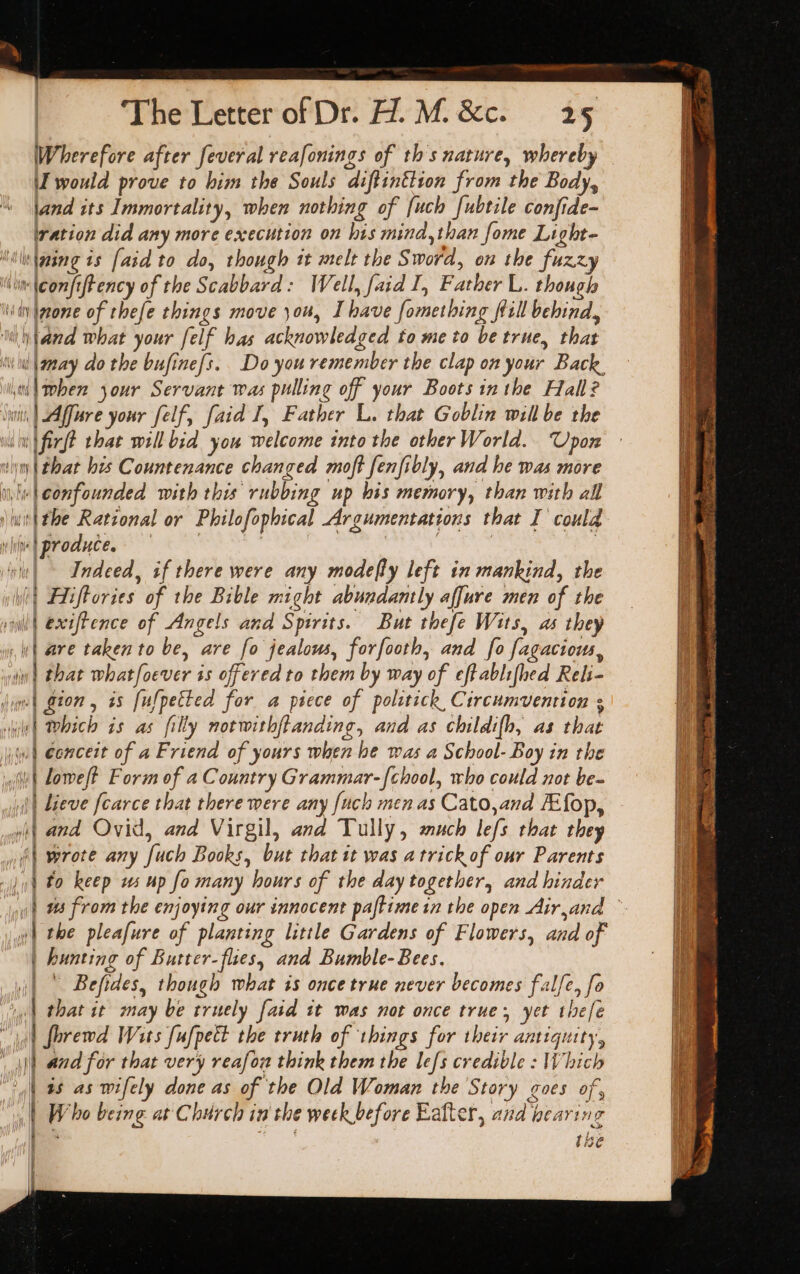 The Letter of Dr. H. M. &c. 25
Wherefore after ſeveral reaſonings of th s nature, whereby
I would prove to him the Souls diſtinction from the Body,
and its Immortality, when nothing of ſuch ſubtile conſide-
ration did any more execution on his mind, than ſome Light-
ning is ſaid to do, though it melt the Sword, on the fuzzy
conſiſtency of the Scabbard: Well, ſaid I, Father L. though
none of theſe things move you, I have ſomething ſtill behind,
and what your ſelf has acknowledged to me to be true, that
may do the buſineſs. Do you remember the clap on your Back
when your Servant was pulling off your Boots in the Hall?
Aſſure your ſelf, ſaid I, Father L. that Goblin will be the
firſt that will bid you welcome into the other World. Upon
that his Countenance changed moſt ſenſibly, and he was more
confounded with this rubbing up his memory, than with all
the Rational or Philoſophical Argumentations that I could
produce.
Indeed, if there were any modeſty left in mankind, the
Hiſtories of the Bible might abundantly aſſure men of the
exiſtence of Angels and Spirits. But theſe Wits, as they
are taken to be, are ſo jealous, forſooth, and ſo ſagacious,
that whatſoever is offered to them by way of eſtabliſhed Reli-
gion, is ſuſpected for a piece of politick Circumvention;
which is as ſilly notwithſtanding, and as childiſh, as that
conceit of a Friend of yours when he was a School-Boy in the
loweſt Form of a Country Grammar-ſchool, who could not be-
lieve ſcarce that there were any ſuch men as Cato, and Æſop,
and Ovid, and Virgil, and Tully, much leſs that they
wrote any ſuch Books, but that it was a trick of our Parents
to keep us up ſo many hours of the day together, and hinder
us from the enjoying our innocent paſtime in the open Air, and
the pleaſure of planting little Gardens of Flowers, and of
hunting of Butter-flies, and Bumble-Bees.
Beſides, though what is once true never becomes falſe, ſo
that it may be truely ſaid it was not once true; yet theſe
ſhrewd Wits ſuſpect the truth of things for their antiquity,
and for that very reaſon think them the leſs credible: Which
is as wiſely done as of the Old Woman the Story goes of,
Who being at Church in the week before Eaſter, and hearing
the